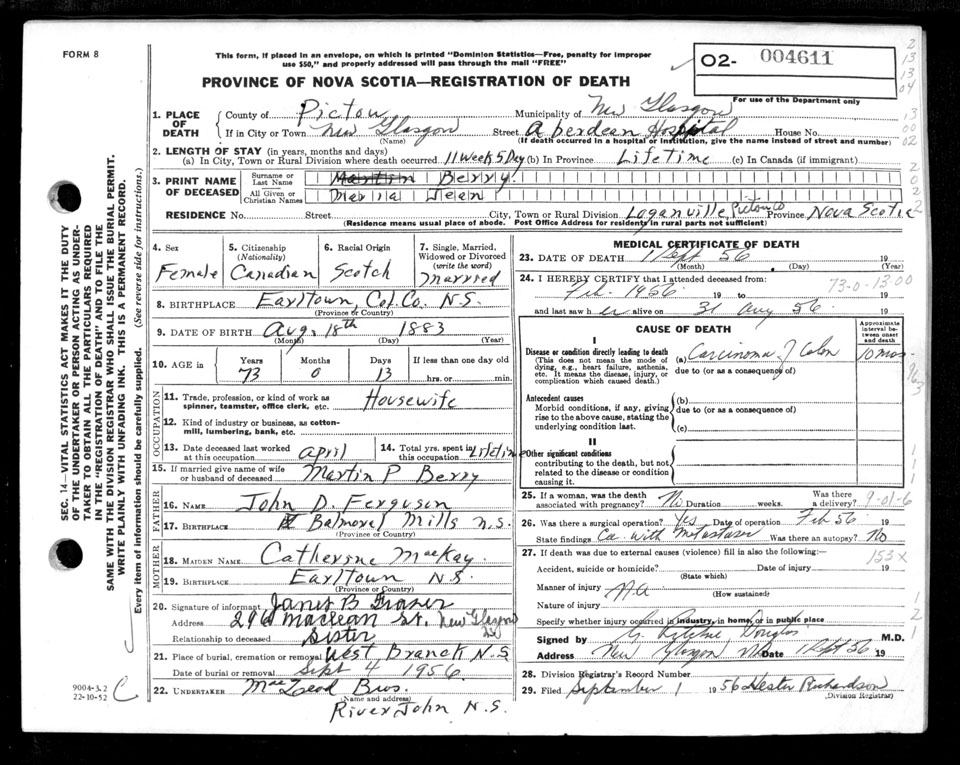 FORM 8
This form, if placed in an envelope, on which is printed "Dominion Statistics—Free, penalty for improper
use $50," and properly addressed will pass through the mail "FREE"
PROVINCE OF NOVA SCOTIA—REGISTRATION OF DEATH
02- 004611
For use of the Department only
1. PLACE OF DEATH
County of Pictou Municipality of New Glasgow
If in City or Town New Glasgow Street Aberdean Hospital House No.
(Name) (If death occurred in a hospital or institution, give the name instead of street and number)
2. LENGTH OF STAY (in years, months and days)
(a) In City, Town or Rural Division where death occurred 11 Week 5 Day (b) In Province Lifetime (c) In Canada (if immigrant)
3. PRINT NAME OF DECEASED
Surname or Last Name Martin Berry
All Given or Christian Names Jean
RESIDENCE No. Street City, Town or Rural Division Loganville, Pictou Co Province Nova Scotia
(Residence means usual place of abode. Post Office Address for residents in rural parts not sufficient)
4. Sex
Female
5. Citizenship (Nationality)
Canadian
6. Racial Origin
Scotch
7. Single, Married, Widowed or Divorced (write the word)
Married
8. BIRTHPLACE Earltown, Col. Co. N.S.
(Province or Country)
9. DATE OF BIRTH Aug. 18th 1883
(Month) (Day) (Year)
10. AGE in
Years Months Days If less than one day old
73 0 13 hrs. or min.
OCCUPATION
11. Trade, profession, or kind of work as spinner, teamster, office clerk, etc. Housewife
12. Kind of industry or business, as cotton-mill, lumbering, bank, etc.
13. Date deceased last worked at this occupation April
14. Total yrs. spent in this occupation Lifetime
15. If married give name of wife or husband of deceased Martin P Berry
FATHER
16. NAME John D. Ferguson
17. BIRTHPLACE Balmoral Mills N.S.
(Province or Country)
MOTHER
18. MAIDEN NAME Catherene MacKay
19. BIRTHPLACE Earltown N.S.
(Province or Country)
20. Signature of informant Janet B Fraser
Address 296 Maclean St. New Glasgow NS
Relationship to deceased Sister
21. Place of burial, cremation or removal West Branch N.S
Date of burial or removal Sept 4 1956
22. UNDERTAKER MacLeod Bros.
(Name and address)
River John N.S.
MEDICAL CERTIFICATE OF DEATH
23. DATE OF DEATH 1 Sept 56 19
(Month) (Day) (Year)
24. I HEREBY CERTIFY that I attended deceased from:
Feb. 1956 19 to 19
73-0-13 00
and last saw her alive on 31 Aug 56 19
CAUSE OF DEATH
Approximate interval between onset and death
I
Disease or condition directly leading to death
(This does not mean the mode of dying, e.g., heart failure, asthenia, etc. It means the disease, injury, or complication which caused death.)
(a) Carcinoma of Colon 10 mos
due to (or as a consequence of)
Antecedent causes
Morbid conditions, if any, giving rise to the above cause, stating the underlying condition last.
(b)
due to (or as a consequence of)
(c)
II
Other significant conditions
contributing to the death, but not related to the disease or condition causing it.
25. If a woman, was the death associated with pregnancy? No Duration weeks. Was there a delivery? 9-01-6
26. Was there a surgical operation? Yes Date of operation Feb 56 19
State findings Ca. with Metastases Was there an autopsy? No
27. If death was due to external causes (violence) fill in also the following:—
153X
Accident, suicide or homicide? Date of injury 19
(State which)
Manner of injury NA
(How sustained)
Nature of injury
Specify whether injury occurred in industry, in home, or in public place
Signed by G. Ritchie Douglas M.D.
Address New Glasgow NS Date 1 Sept 56 19
28. Division Registrar's Record Number
29. Filed September 1 1956 Hester Richardson
(Division Registrar)
SEC. 14—VITAL STATISTICS ACT MAKES IT THE DUTY
OF THE UNDERTAKER OR PERSON ACTING AS UNDER-
TAKER TO OBTAIN ALL THE PARTICULARS REQUIRED
IN THE "REGISTRATION OF DEATH" AND TO FILE THE
SAME WITH THE DIVISION REGISTRAR WHO SHALL ISSUE THE BURIAL PERMIT.
WRITE PLAINLY WITH UNFADING INK. THIS IS A PERMANENT RECORD.
Every item of information should be carefully supplied. (See reverse side for instructions.)
9004-3.2
22-10-52